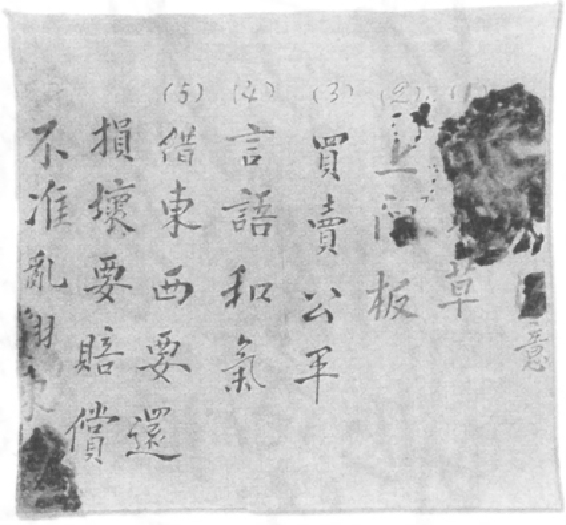 意
(1) 草
(2) 上門板
(3) 買賣公平
(4) 言語和氣
(5) 借東西要還
損壞要賠償
不准亂翻